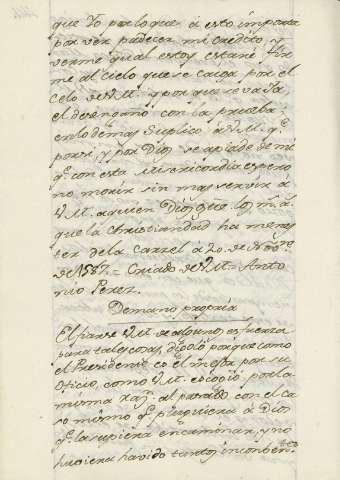 que Yo por lo que à esto importa
por ver padecer mi credito, y
verme qual estoy estaré fir
me al Cielo que se caiga por el
Celo de V.M. y por que se vaya
el desengaño con la prueba:
en lo demas suplico à V.M. q.e
por si, y por Dios se apiade de mi
q.e con esta misericordia espero
no morir sin mas servir à
V.M. a quien Dios gu.e los m.s a.s
que la christiandad ha menes
ter de la Carzel à 20. de Nov.re
de 1587.= Criado de V.M.= Anto
nio Perez.
De mano propria
El fiarse V.M. de alguno, es fuerza
para tales cosas, digolo porque como
el Presidente es el mejor por su
Oficio, como V.M. escogió por la
misma raz.n al pasado con el ca
so mismo q.e pluguiera à Dios
q.e la supiera encaminar, y no
huviera havido tantos inconben.tes